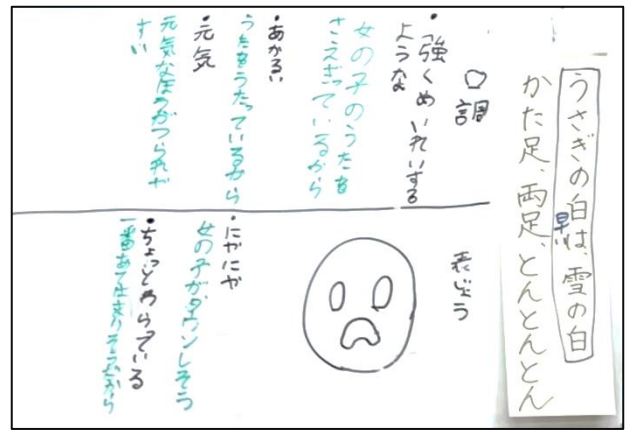 うさぎの白は、雪の白
早い
かた足、両足、とんとんとん
口調
・強くめいれいする
ような
女の子のうたを
さえぎっているから
・あかるい
うたをうたっているから
・元気
元気なほうがつられや
すい
表じょう
・にやにや
女の子が、ダウンしそう
・ちょっとわらっている
一番あてはまりそうだから